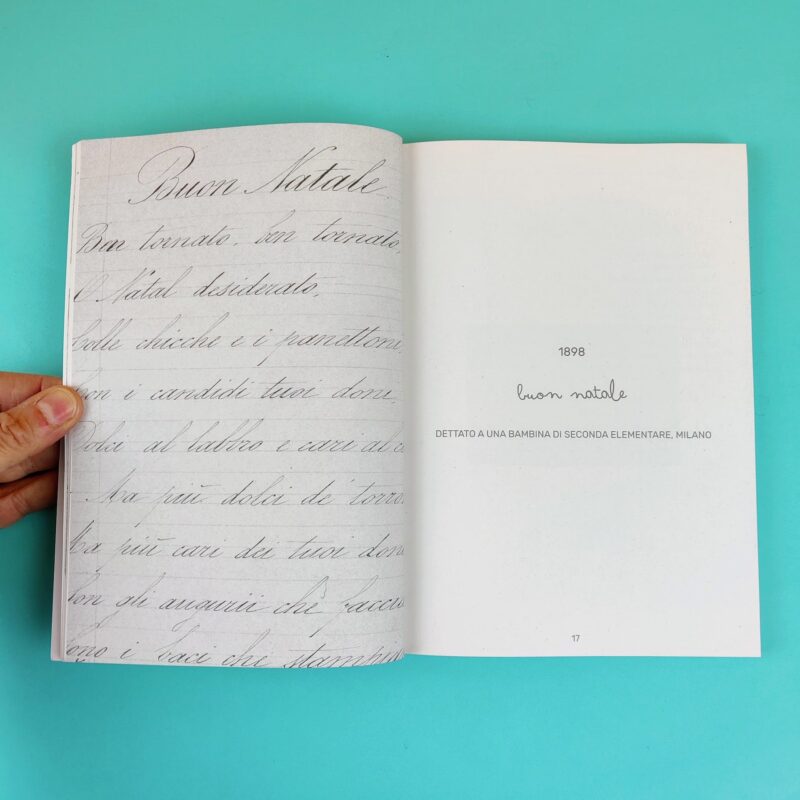 Buon Natale
Ben tornato, ben tornato,
O Natal desiderato,
Colle chicche e i panettoni,
Con i candidi tuoi doni,
Dolci al labbro e cari al c
- Ma più dolci de' torro
Ma più cari dei tuoi don
Con gli augurii che facci
Sono i baci che stampi
1898
buon natale
DETTATO A UNA BAMBINA DI SECONDA ELEMENTARE, MILANO
17